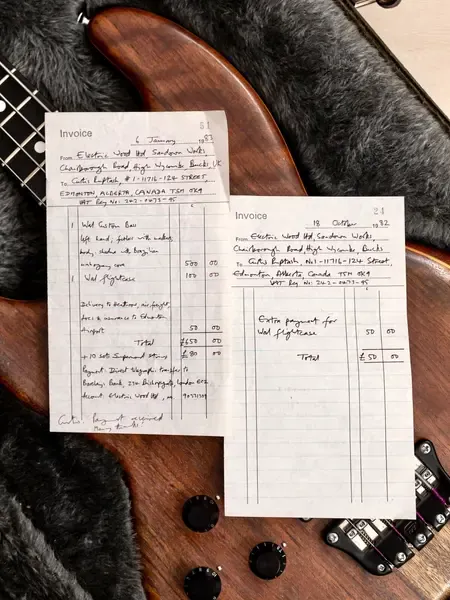 Invoice
6 January 1982
From Electric Wood Ltd Sandown Works,
Chairborough Road, High Wycombe, Bucks, UK
To Curtis Ruptash, #1-11716-124 STREET,
EDMONTON, ALBERTA, CANADA T5M 0K9
VAT Reg No: 242-0273-95
£
1 Wal Custom Bass
left hand, fretless with
body, Brazilian
mahogany core 500 00
1 Wal flightcase 100 00
Delivery to Heathrow, air freight,
& insurance to Edmonton
Airport 50 00
Total £650 00
+ 10 sets Superwound strings £80 00
Payment: Direct Telegraphic transfer to
Barclays Bank, Bishopsgate, London EC2
Account Electric Wood Ltd,
Curtis: Payment received
Many thanks!
Invoice
18 October 1982
From Electric Wood Ltd, Sandown Works,
Chairborough Road, High Wycombe, Bucks
To Curtis Ruptash, No1-11716-124 Street,
Edmonton, Alberta, Canada T5M 0K9
VAT Reg No: 242-0273-95
£
Extra payment for
Wal flightcase 50 00
Total £50 00